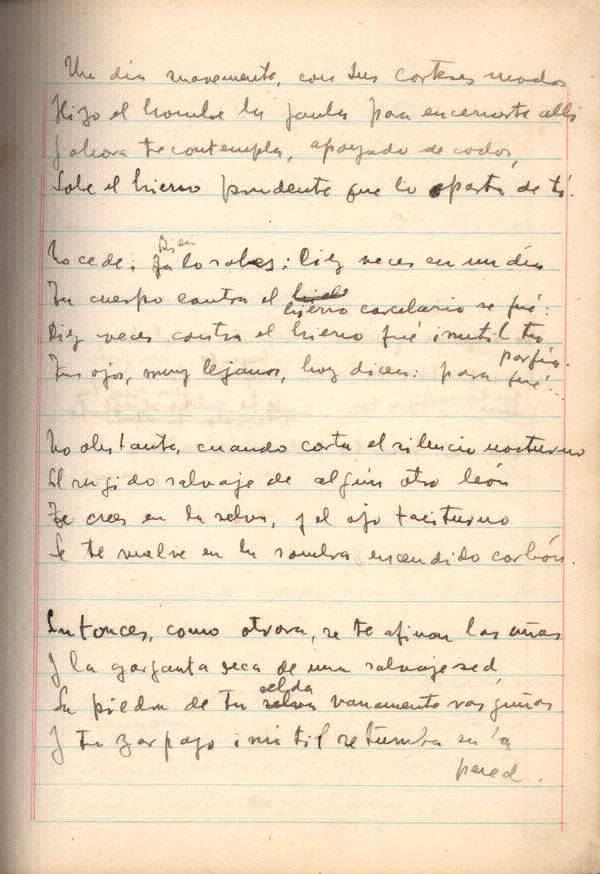 Un día suavemente, con sus corteses modos
Hizo el hombre la jaula para encerrarte allí
Y ahora te contempla, apoyado de codos,
Sobre el hierro prudente que lo aparta de tí.
Bien
No cede; ya lo sabes: Diez veces en un día
Tu cuerpo contra el hierro carcelario se fué:
Diez veces contra el hierro fué inutil tu
porfía.
Tus ojos, muy lejanos, hoy dicen: para qué...
No obstante, cuando corta el silencio nocturno
El rugido salvaje de algún otro león
Te crees en la selva, y el ojo taciturno
Se te vuelve en la sombra encendido carbón.
Entonces, como otrora, se te afinan las uñas
Y la garganta seca de una salvaje sed
celda
La piedra de tu selva vanamente rasguñas
Y tu zarpazo inútil retumba en la
pared.